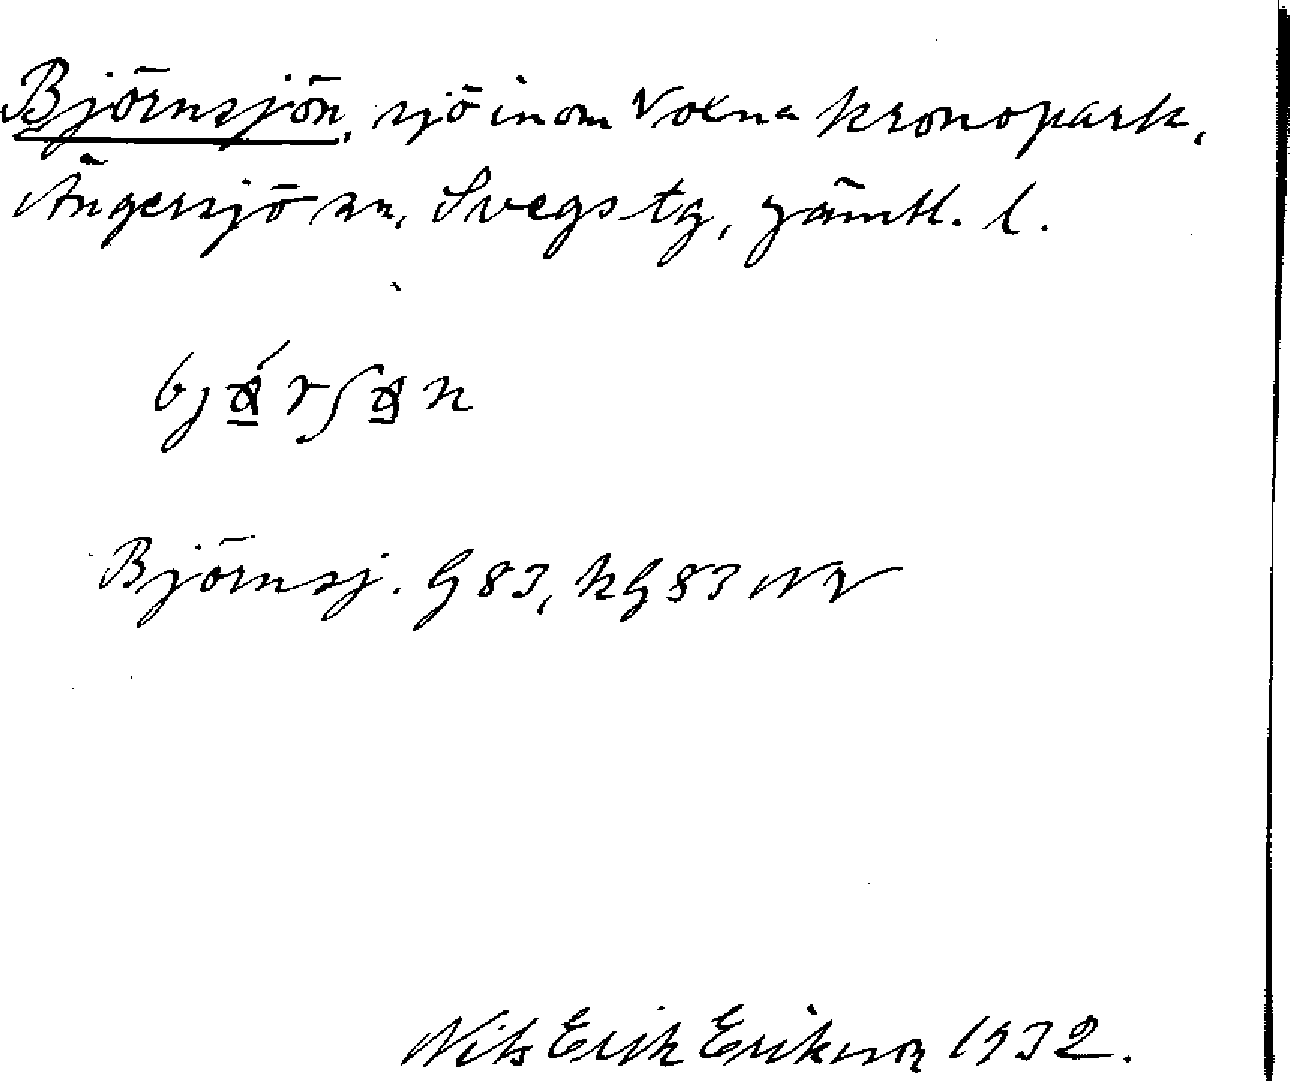 Björnsjön, sjö inom Voxna kronopark,
Ängersjö sn, Svegs tg, Jämtl. l.
Björnsj. G 83, kG 83 NV
Nils Erik Erikson 1932.